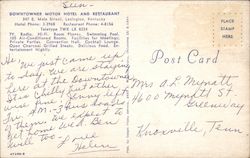 Seen-
DOWNTOWNER MOTOR HOTEL AND RESTAURANT
347 E. Main Street, Lexington, Kentucky
Hotel Phone: 3-2968 Restaurant Phone: 4-8156
Teletype TWX LX 8254
TV, Radio, Hi-Fi, Room Phones, Swimming Pool.
Air Conditioned Rooms. Facilities for Meetings,
Private Parties, Convention Hall, Cocktail Lounge.
Open Charcoal Grilled Steaks. Delicious Food. Entertainment Nightly.
Hi We just came up
to day. We are staying
here at the Downtowner
It is chilly but other
wise fine. Going up to
a.m. Hans
of them we expect to
get home wed. Gen
will too I
Helen
PLACE
STAMP
HERE
Post Card
Mrs A L Mynatt
4600 Mynatt St
Greenway
Knoxville, Tenn